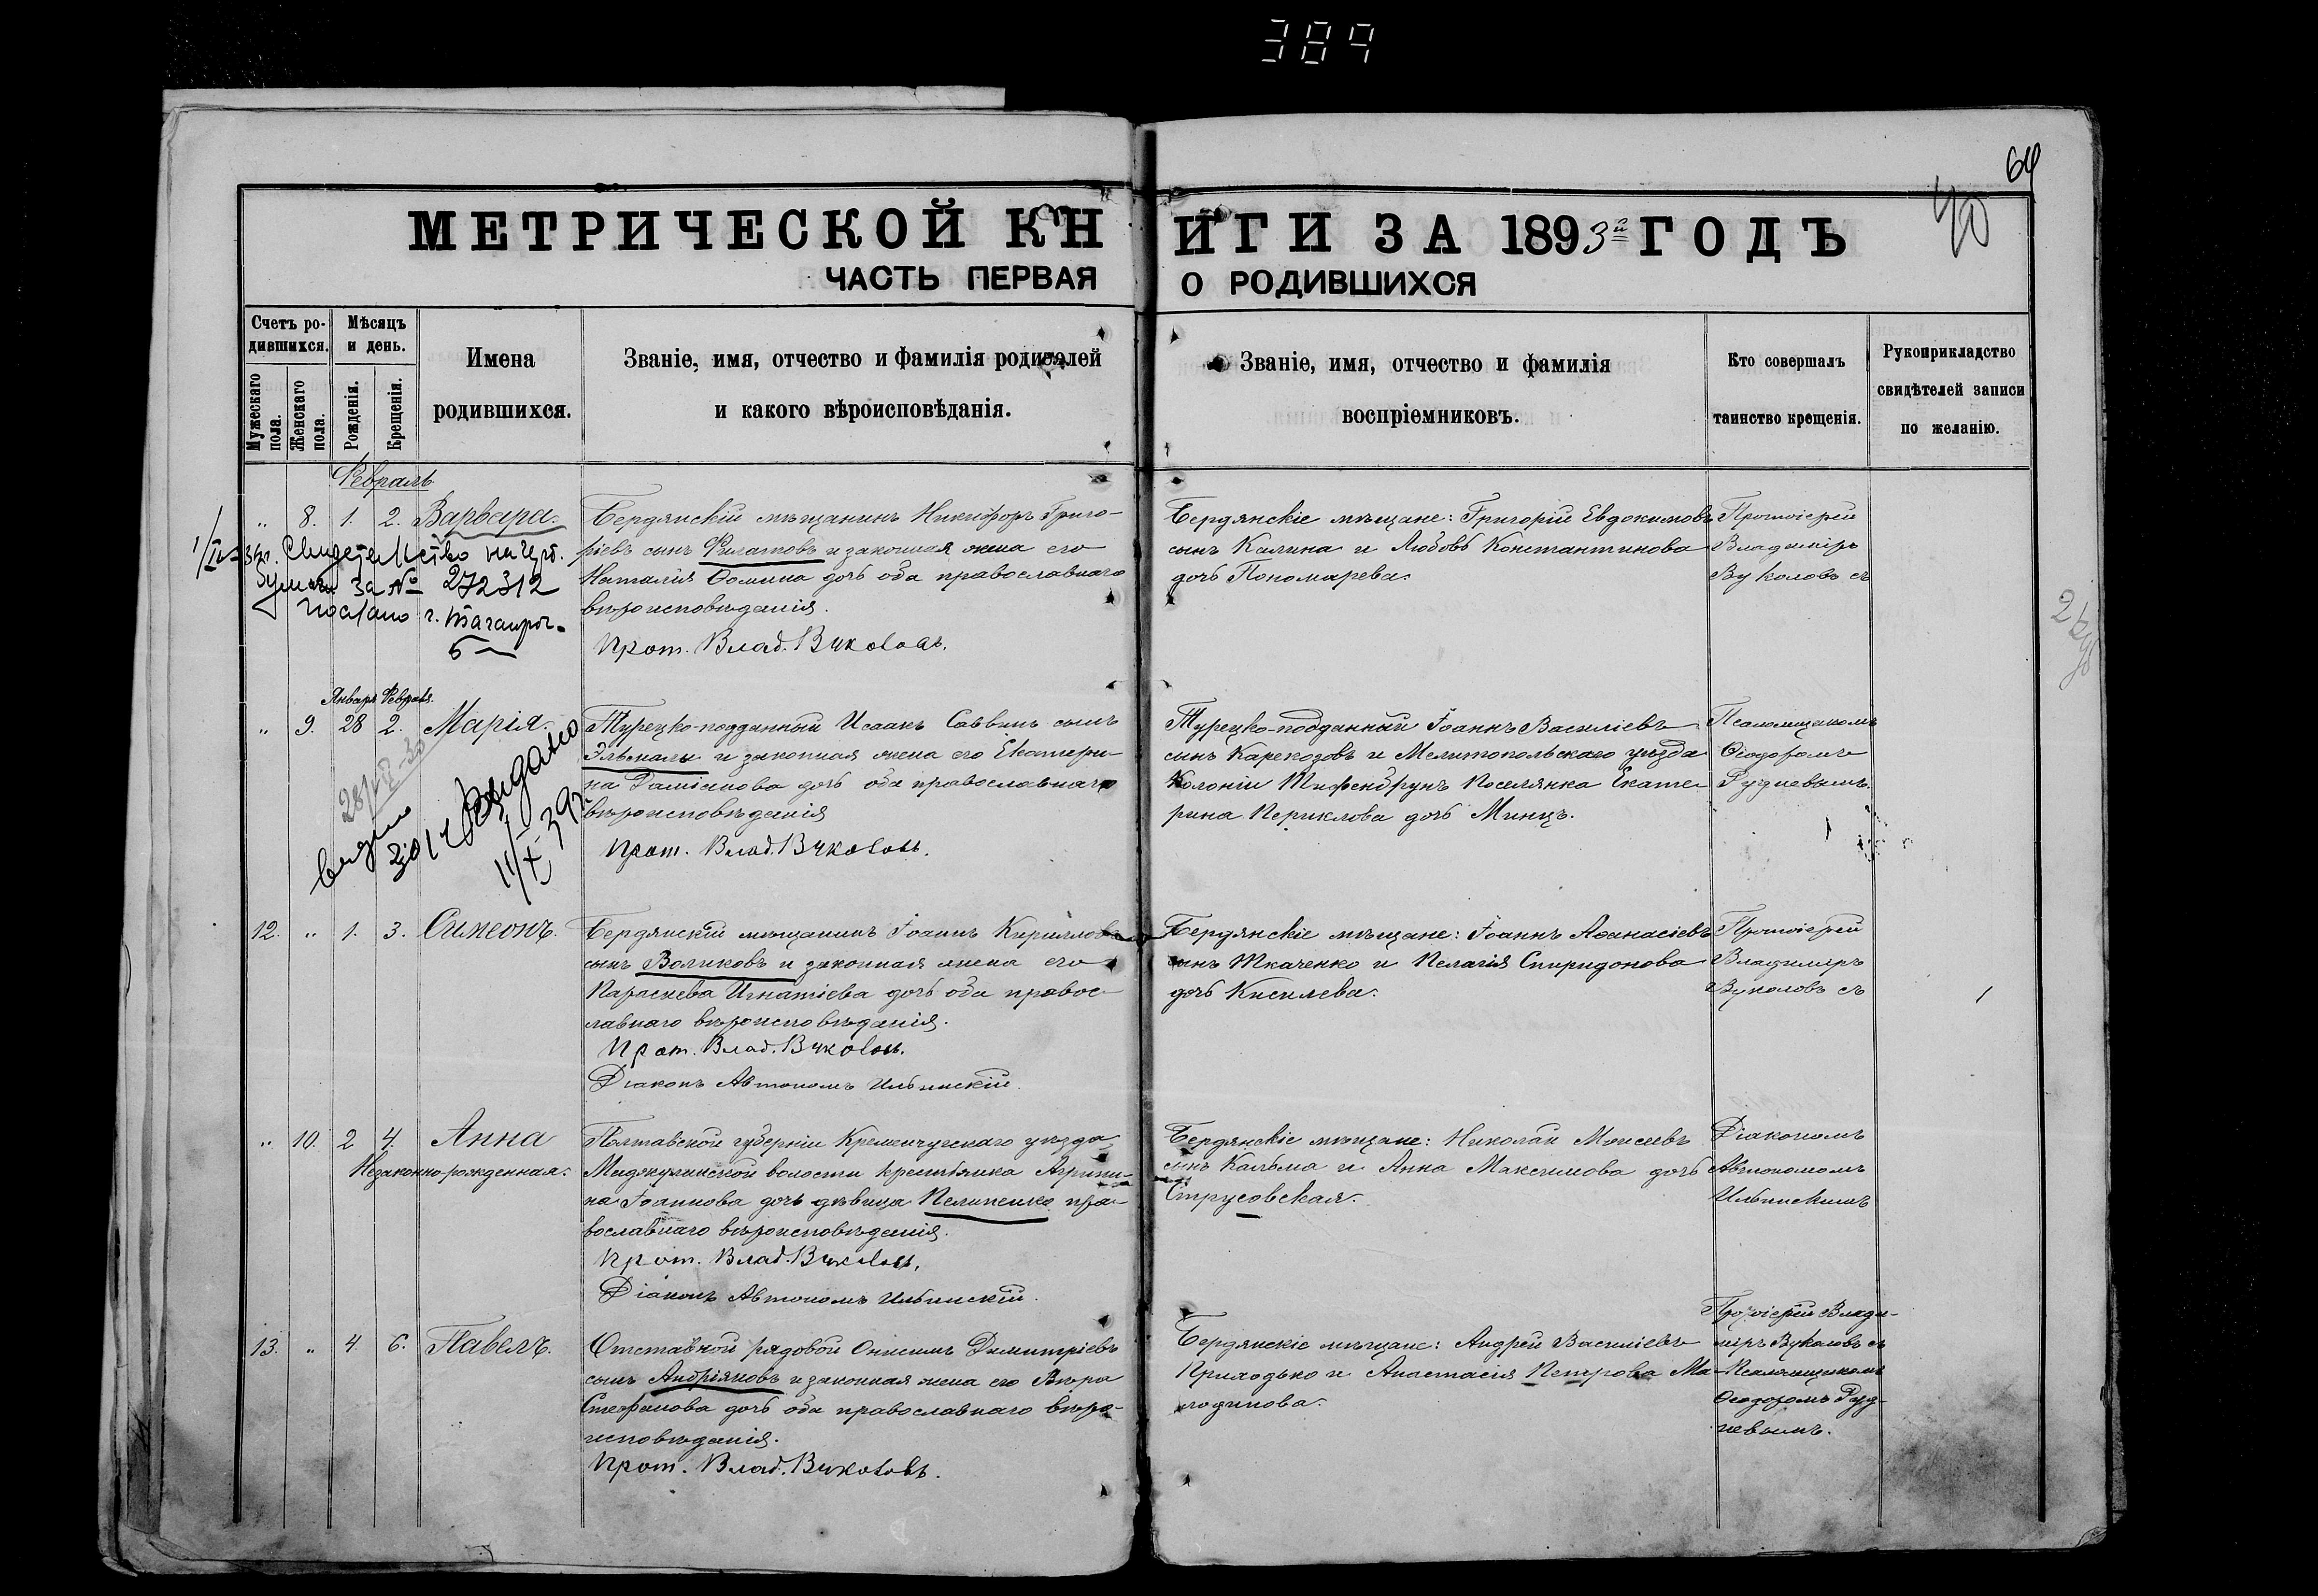 389
64
40
МЕТРИЧЕСКОЙ КНИГИ ЗА 1893й ГОДЪ
ЧАСТЬ ПЕРВАЯ О РОДИВШИХСЯ
Счетъ ро-
дившихся.
Мужескаго
пола.
Женскаго
пола.
Мѣсяцъ
и день.
Рожденія.
Крещенія.
Имена
родившихся.
Званіе, имя, отчество и фамилія родителей
и какого вѣроисповѣданія.
Званіе, имя, отчество и фамилія
воспріемниковъ.
Кто совершалъ
таинство крещенія.
Рукоприкладство
свидѣтелей записи
по желанію.
Февраль
„ 8. 1. 2. Варвара.
Свидетельство на
за № 272312
послано г. Таганрог
Бердянскій мѣщанинъ Никифоръ Григо-
ріевъ сынъ Филатовъ и законная жена его
Наталія Ѳомина дочь оба православнаго
вѣроисповѣданія.
Прот. Влад. Вуколовъ.
Бердянскіе мѣщане: Григорій Евдокимовъ
сынъ Калина и Любовь Константинова
дочь Пономарева.
Протоіерей
Владиміръ
Вуколовъ съ
Январь Февраля.
„ 9. 28 2. Марія.
Выдано
11/X 39г.
Турецко-подданный Исаакъ Саввинъ сынъ
Эльмалы и законная жена его Екатери-
на Даміанова дочь оба православнаго
вѣроисповѣданія
Прот. Влад. Вуколовъ.
Турецко-подданный Іоаннъ Василіевъ
сынъ Карекозовъ и Мелитопольскаго уѣзда
Колоніи Тифенбрунъ поселянка Екате-
рина Периклова дочь Минцъ.
Псаломщикомъ
Ѳеодоромъ
Рудневымъ.
12. „ 1. 3. Симеонъ.
Бердянскій мѣщанинъ Іоаннъ Кирилловъ
сынъ Воликовъ и законная жена его
Параскева Игнатіева дочь оба правос-
лавнаго вѣроисповѣданія.
Прот. Влад. Вуколовъ.
Діаконъ Автономъ Ильинскій.
Бердянскіе мѣщане: Іоаннъ Аѳанасіевъ
сынъ Ткаченко и Пелагія Спиридонова
дочь Киселева.
Протоіерей
Владиміръ
Вуколовъ съ
„ 10. 2 4. Анна
Незаконно-рожденная.
Полтавской губерніи Кременчугскаго уѣзда
волости крестьянка Агрипи-
на Іоаннова дочь дѣвица Пелипенко пра-
вославнаго вѣроисповѣданія.
Прот. Влад. Вуколовъ.
Діаконъ Автономъ Ильинскій.
Бердянскіе мѣщане: Николай Моисеевъ
сынъ Кальма и Анна Максимова дочь
Струсовская.
Діакономъ
Автономомъ
Ильинскимъ
13. „ 4. 6. Павелъ.
Отставной рядовой Онисимъ Димитріевъ
сынъ Андріяновъ и законная жена его Вѣра
Стефанова дочь оба православнаго вѣро-
исповѣданія.
Прот. Влад. Вуколовъ.
Бердянскіе мѣщане: Андрей Василіевъ
Приходько и Анастасія Петрова Ма-
Протоіерей Влади-
міръ Вуколовъ съ
Псаломщикомъ
Ѳеодоромъ Руд-
невымъ.